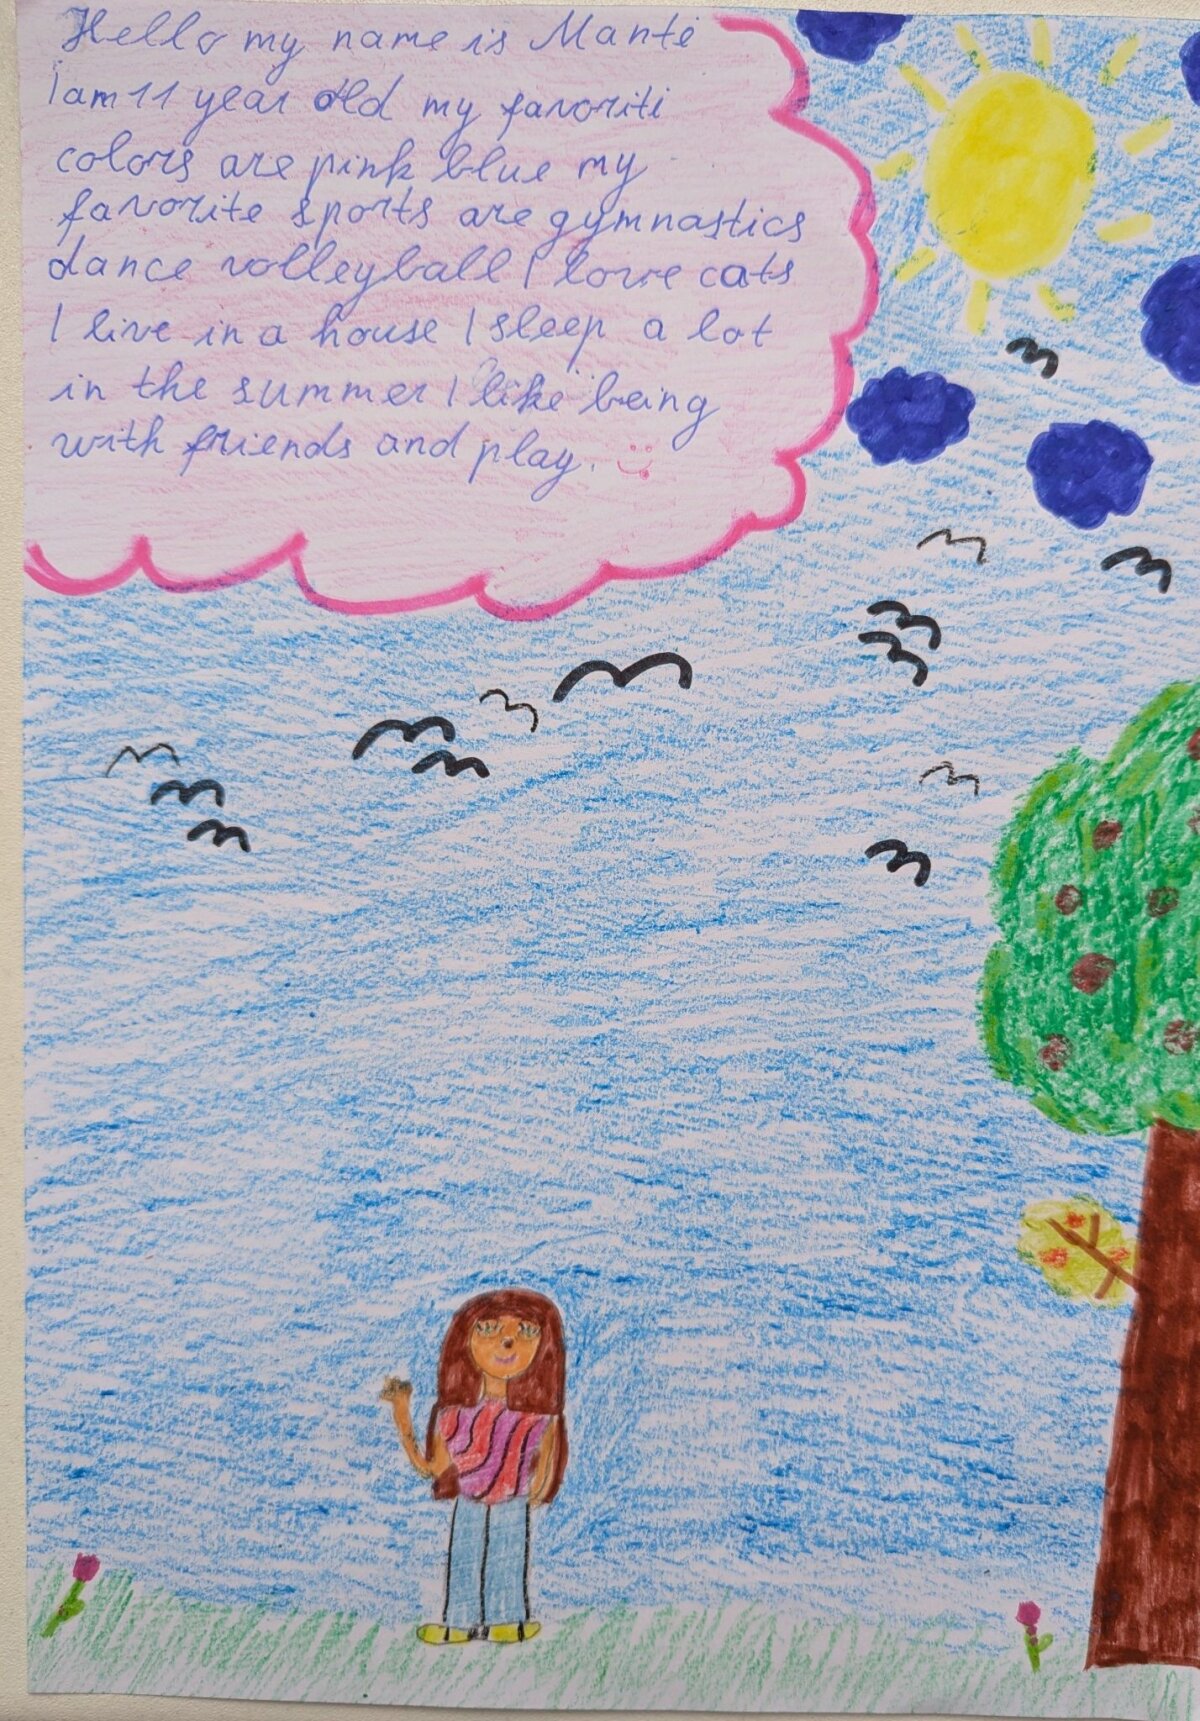 Hello my name is Mantė
I am 11 year old my favoriti
colors are pink blue my
favorite sports are gymnastics
dance volleyball I love cats
I live in a house I sleep a lot
in the summer I like being
with friends and play.